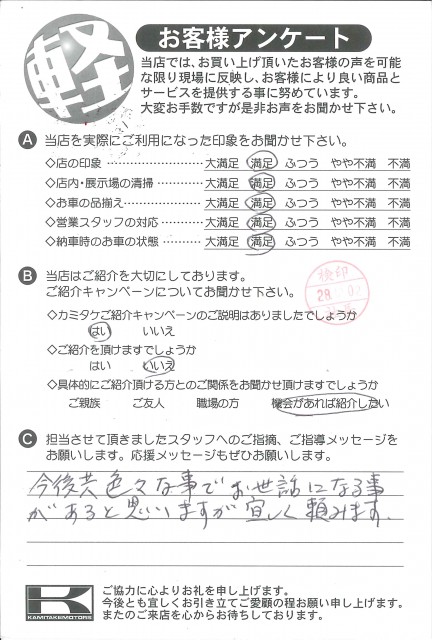 軽
お客様アンケート
当店では、お買い上げ頂いたお客様の声を可能
な限り現場に反映し、お客様により良い商品と
サービスを提供する事に努めています。
大変お手数ですが是非お声をお聞かせ下さい。
A 当店を実際にご利用になった印象をお聞かせ下さい。
◇店の印象 ………………… 大満足 満足 ふつう やや不満 不満
◇店内・展示場の清掃………… 大満足 満足 ふつう やや不満 不満
◇お車の品揃え……………… 大満足 満足 ふつう やや不満 不満
◇営業スタッフの対応………… 大満足 満足 ふつう やや不満 不満
◇納車時のお車の状態………… 大満足 満足 ふつう やや不満 不満
B 当店はご紹介を大切にしております。
ご紹介キャンペーンについてお聞かせ下さい。
検印
28
◇カミタケご紹介キャンペーンのご説明はありましたでしょうか
はい いいえ
◇ご紹介を頂けますでしょうか
はい いいえ
◇具体的にご紹介頂ける方とのご関係をお聞かせ頂けますでしょうか
ご親族 ご友人 職場の方 機会があれば紹介したい
C 担当させて頂きましたスタッフへのご指摘、ご指導メッセージを
お願いします。応援メッセージもぜひお願いします。
今後共色々な事でお世話になる事
があると思いますが宜しく頼みます。
K
KAMITAKEMOTORS
ご協力に心よりお礼を申し上げます。
今後とも宜しくお引き立てご愛顧の程お願い申し上げます。
またのご来店を心からお待ちしております。